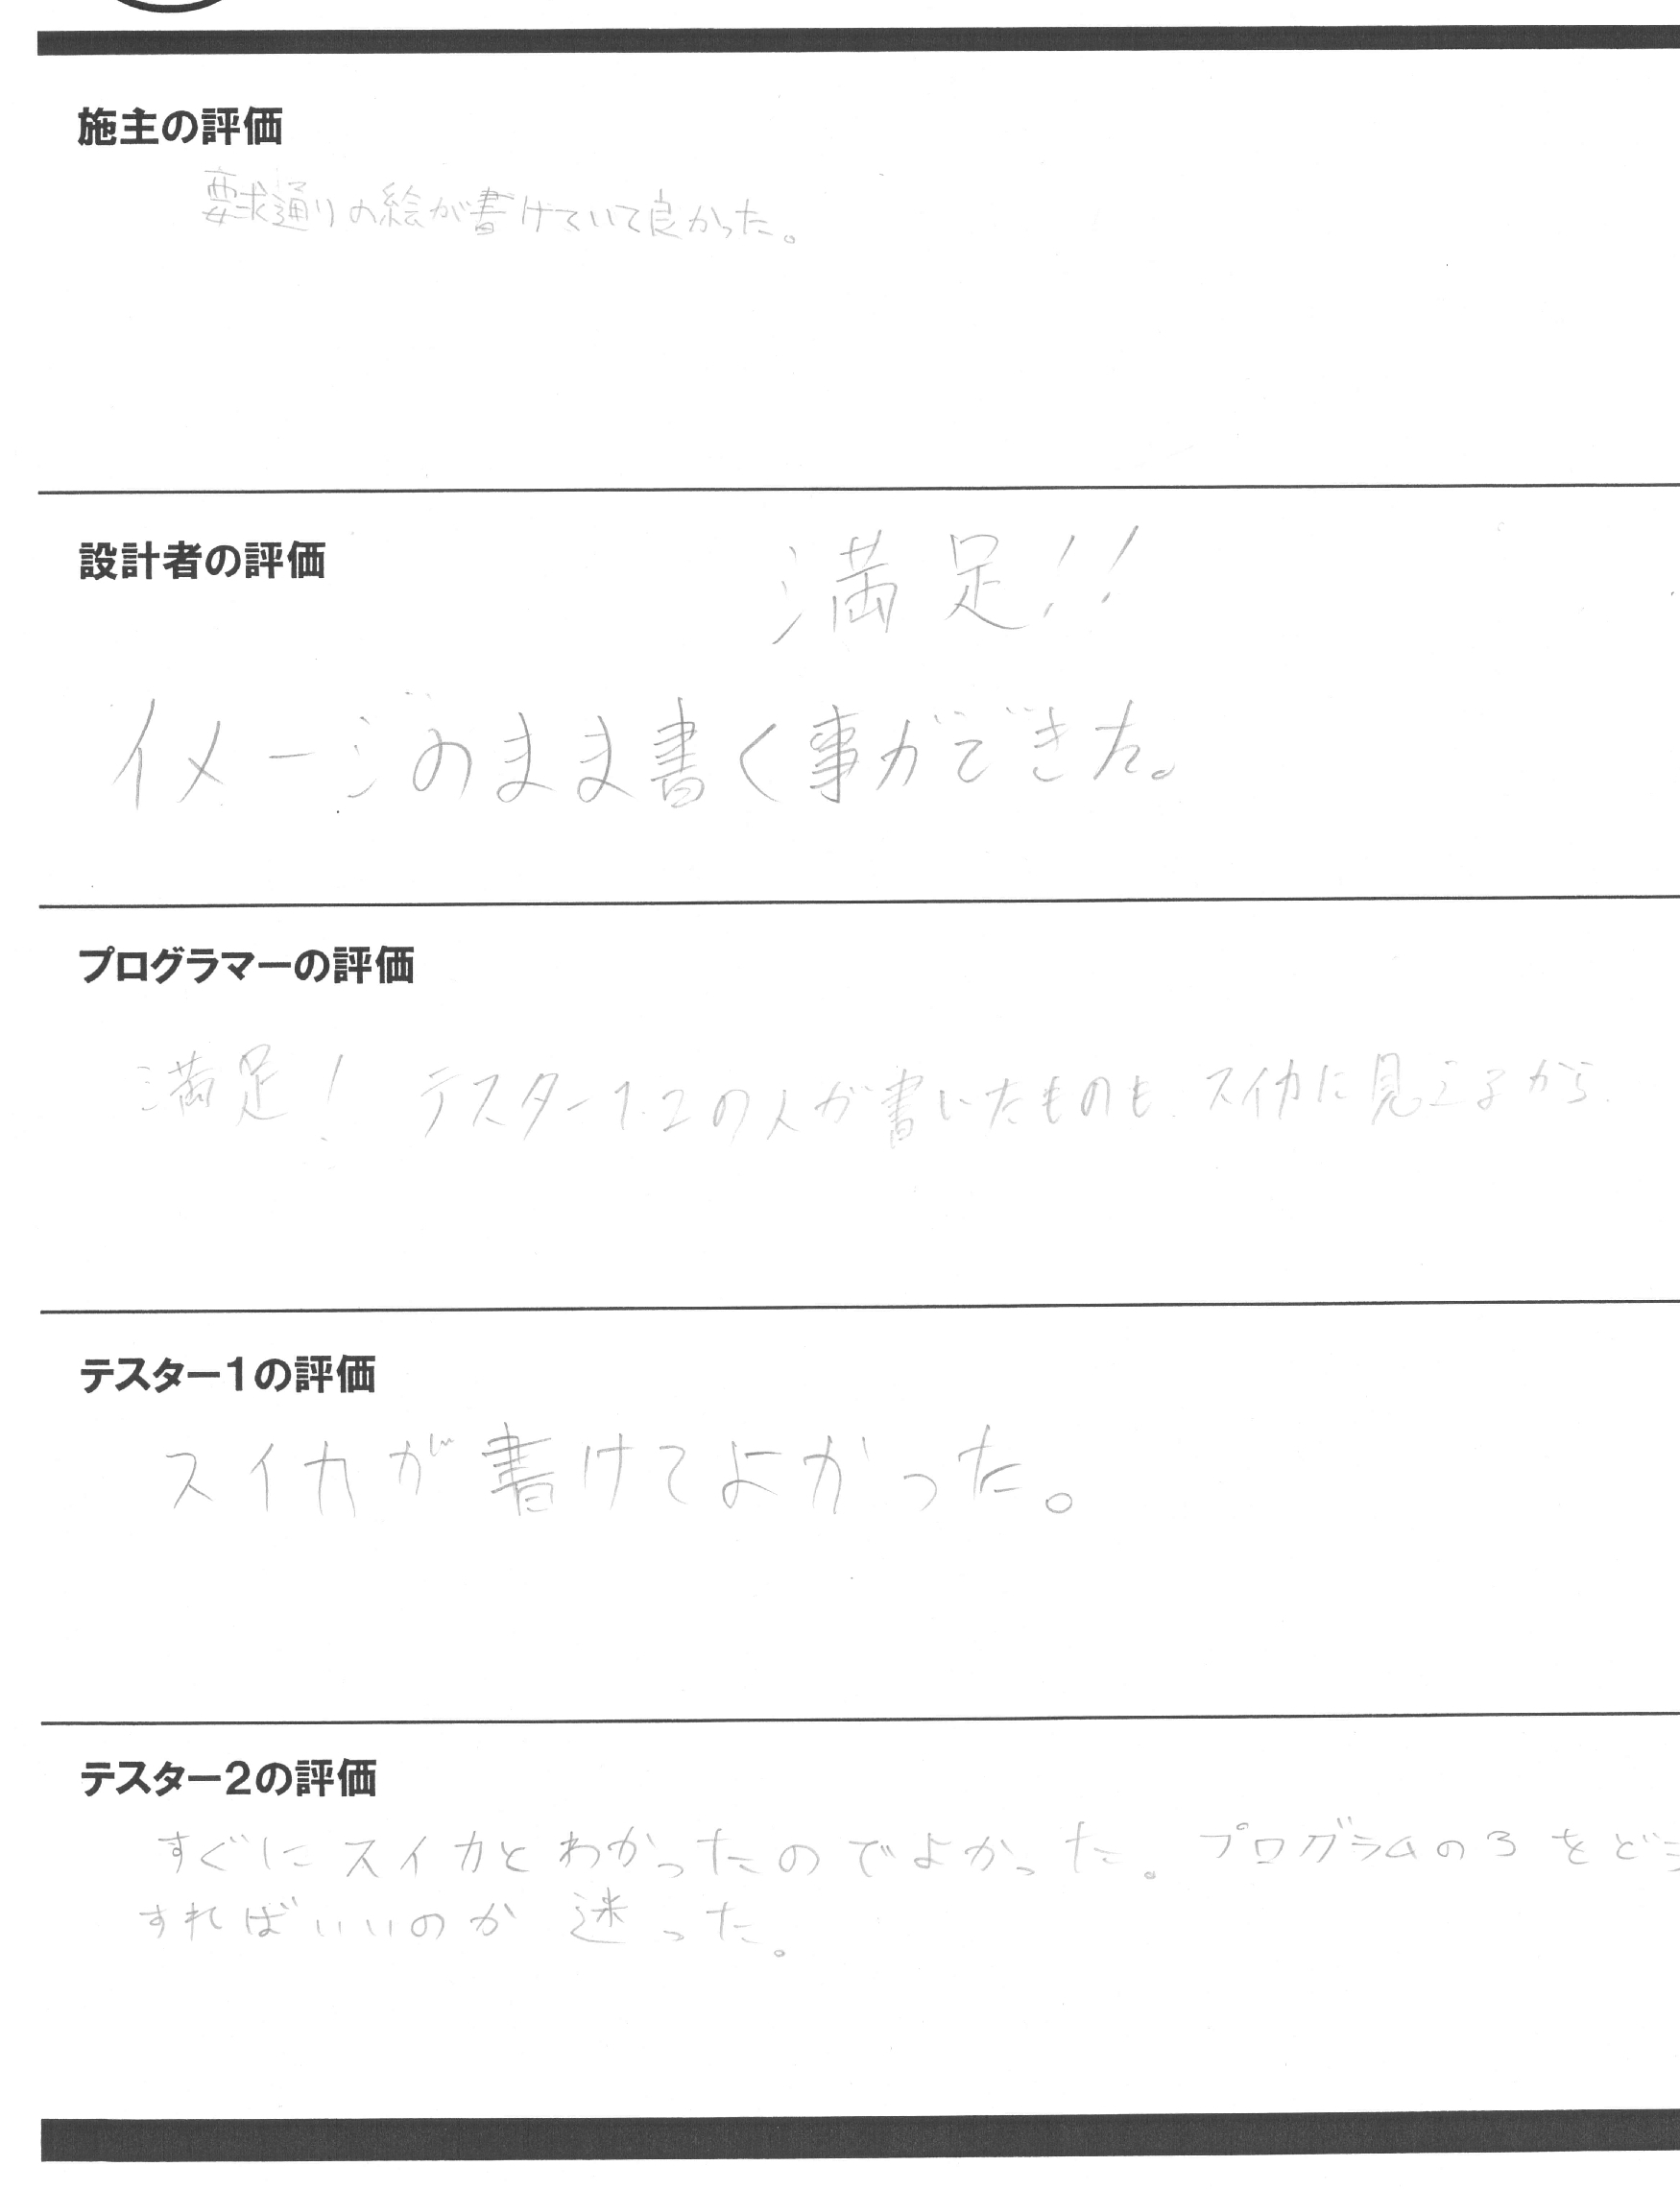 施主の評価
要求通りの絵が書けていて良かった。
設計者の評価
満足!!
イメージのまま書く事ができた。
プログラマーの評価
満足! テスター1.2の人が書いたものも、スイカに見えるから.
テスター1の評価
スイカが書けてよかった。
テスター2の評価
すぐにスイカとわかったのでよかった。プログラムの3をどう
すればいいのか迷った。